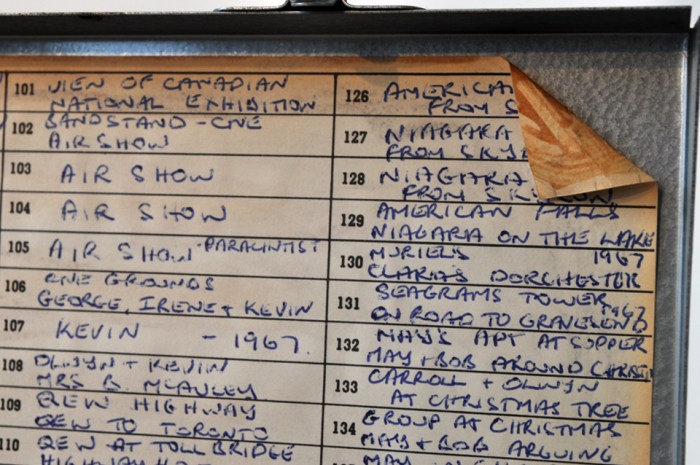 101 VIEW OF CANADIAN
NATIONAL EXHIBITION
102 BANDSTAND - CNE
AIR SHOW
103 AIR SHOW
104 AIR SHOW
105 AIR SHOW - PARACHUTIST
106 CNE GROUNDS
GEORGE, IRENE + KEVIN
107 KEVIN - 1967.
108 OLWYN + KEVIN
MRS B. MCAULEY
109 QEW HIGHWAY
QEW TO TORONTO
110 QEW AT TOLL BRIDGE
126 AMERICA
FROM S
127 NIAGARA
FROM SKY
128 NIAGARA
FROM
129 AMERICAN FALLS
NIAGARA ON THE LAKE
130 MURIELS 1967
CLARKS DORCHESTER
131 SEAGRAMS TOWER
ON ROAD TO GRAVESEND 1967
132 MAYS APT AT SUPPER
MAY + BOB AROUND CHRIST
133 CARROLL + OLWYN
AT CHRISTMAS TREE
134 GROUP AT CHRISTMAS
MAY + BOB ARGUING